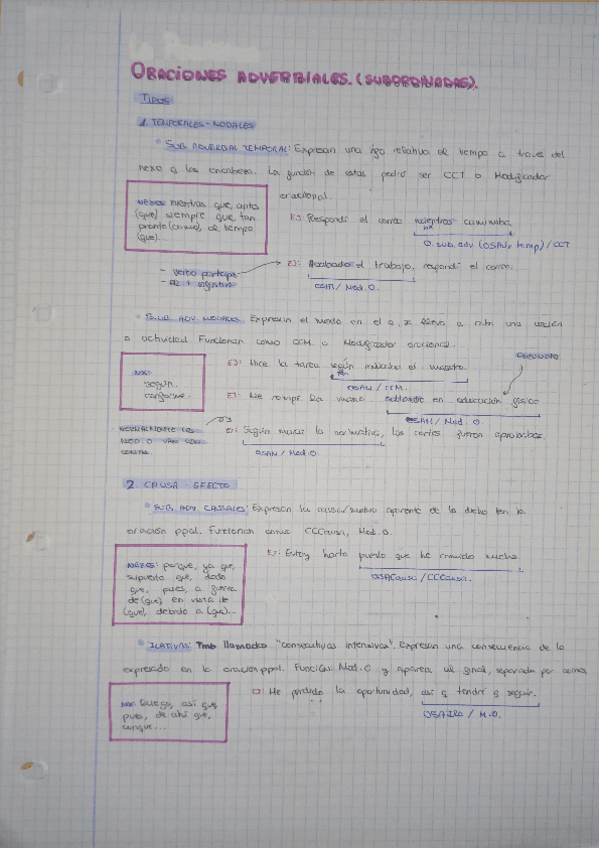 ORACIONES ADVERBIALES. (SUBORDINADAS).
TIPOS
1. TEMPORALES - MODALES
* SUB. ADVERBIAL TEMPORAL: Expresan una relativa al tiempo a traves del
nexo q las encabeza. La función de estas podrá ser CCT o Modificador
oracional.
NEXOS: mientras que, antes
(que) siempre que, tan
pronto (como), al tiempo
(que)...
Ej: Respondí el correo mientras caminaba.
nx
O. sub. adv (OSAdv temp) / CCT
- Verbo participio
- Al + infinitivo
Ej: Acabado el trabajo, respondí el correo.
OSAT / Mod. O.
* SUB. ADV. MODALES: Expresan el modo en el q se lleva a cabo una acción
o actividad. Funcionan como CCM o Modificador oracional.
NX:
según,
conforme...
Ej: Hice la tarea según indicaba el maestro.
nx
OSAM / CCM.
GERUNDIO
Ej: Me rompí la mano saltando en educación física
OSAM / Mod. O.
NORMALMENTE LOS
MOD. O VAN CON
COMA.
Ej: Según marca la normativa, los cortes fueron aprobados
OSAM / Mod. O.
2. CAUSA - EFECTO
* SUB. ADV. CAUSALES: Expresan la causa/motivo aparente de lo dicho en la
oración ppal. Funcionan como CCCausa, Mod. O.
NEXOS: porque, ya que,
supuesto que, dado
que, pues, a fuerza
de (que), en vista de
(que), debido a (que)...
Ej: Estoy harto puesto que he comido mucho.
OSACausal / CCCausa.
* ILATIVAS: Tmb llamadas "consecutivas intensivas". Expresan una consecuencia de lo
expresado en la oración ppal. Función: Mod. O y aparece al final, separada por coma.
NX: luego, así que,
pues, de ahí que,
aunque...
Ej: He perdido la oportunidad, así q tendré q seguir.
OSAIla / M.O.